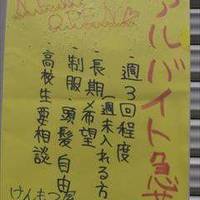 アルバイト急募
・週3回程度
(週末入れる方
・長期希望
・制服・頭髪自由
高校生要相談